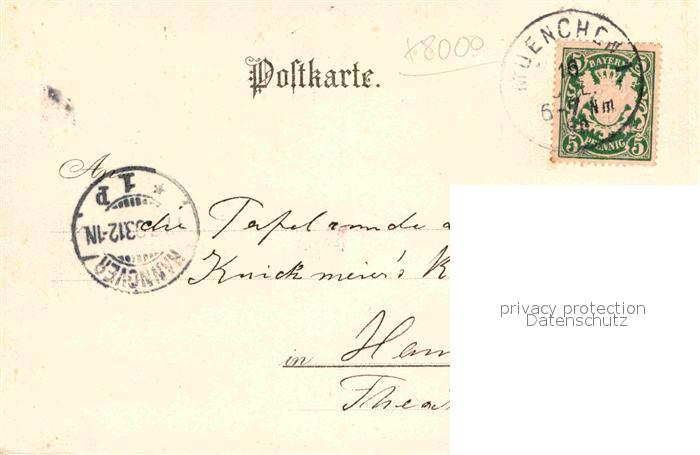 x8000
MUENCHEN
16 JUL.
6-7 Nm
BAYERN
5 5
5 PFENNIG 5
Postkarte.
An
HANNOVER
12-1N
1. P
die Tafelrunde
Knickmeier's K
in Han
Thea
privacy protection
Datenschutz